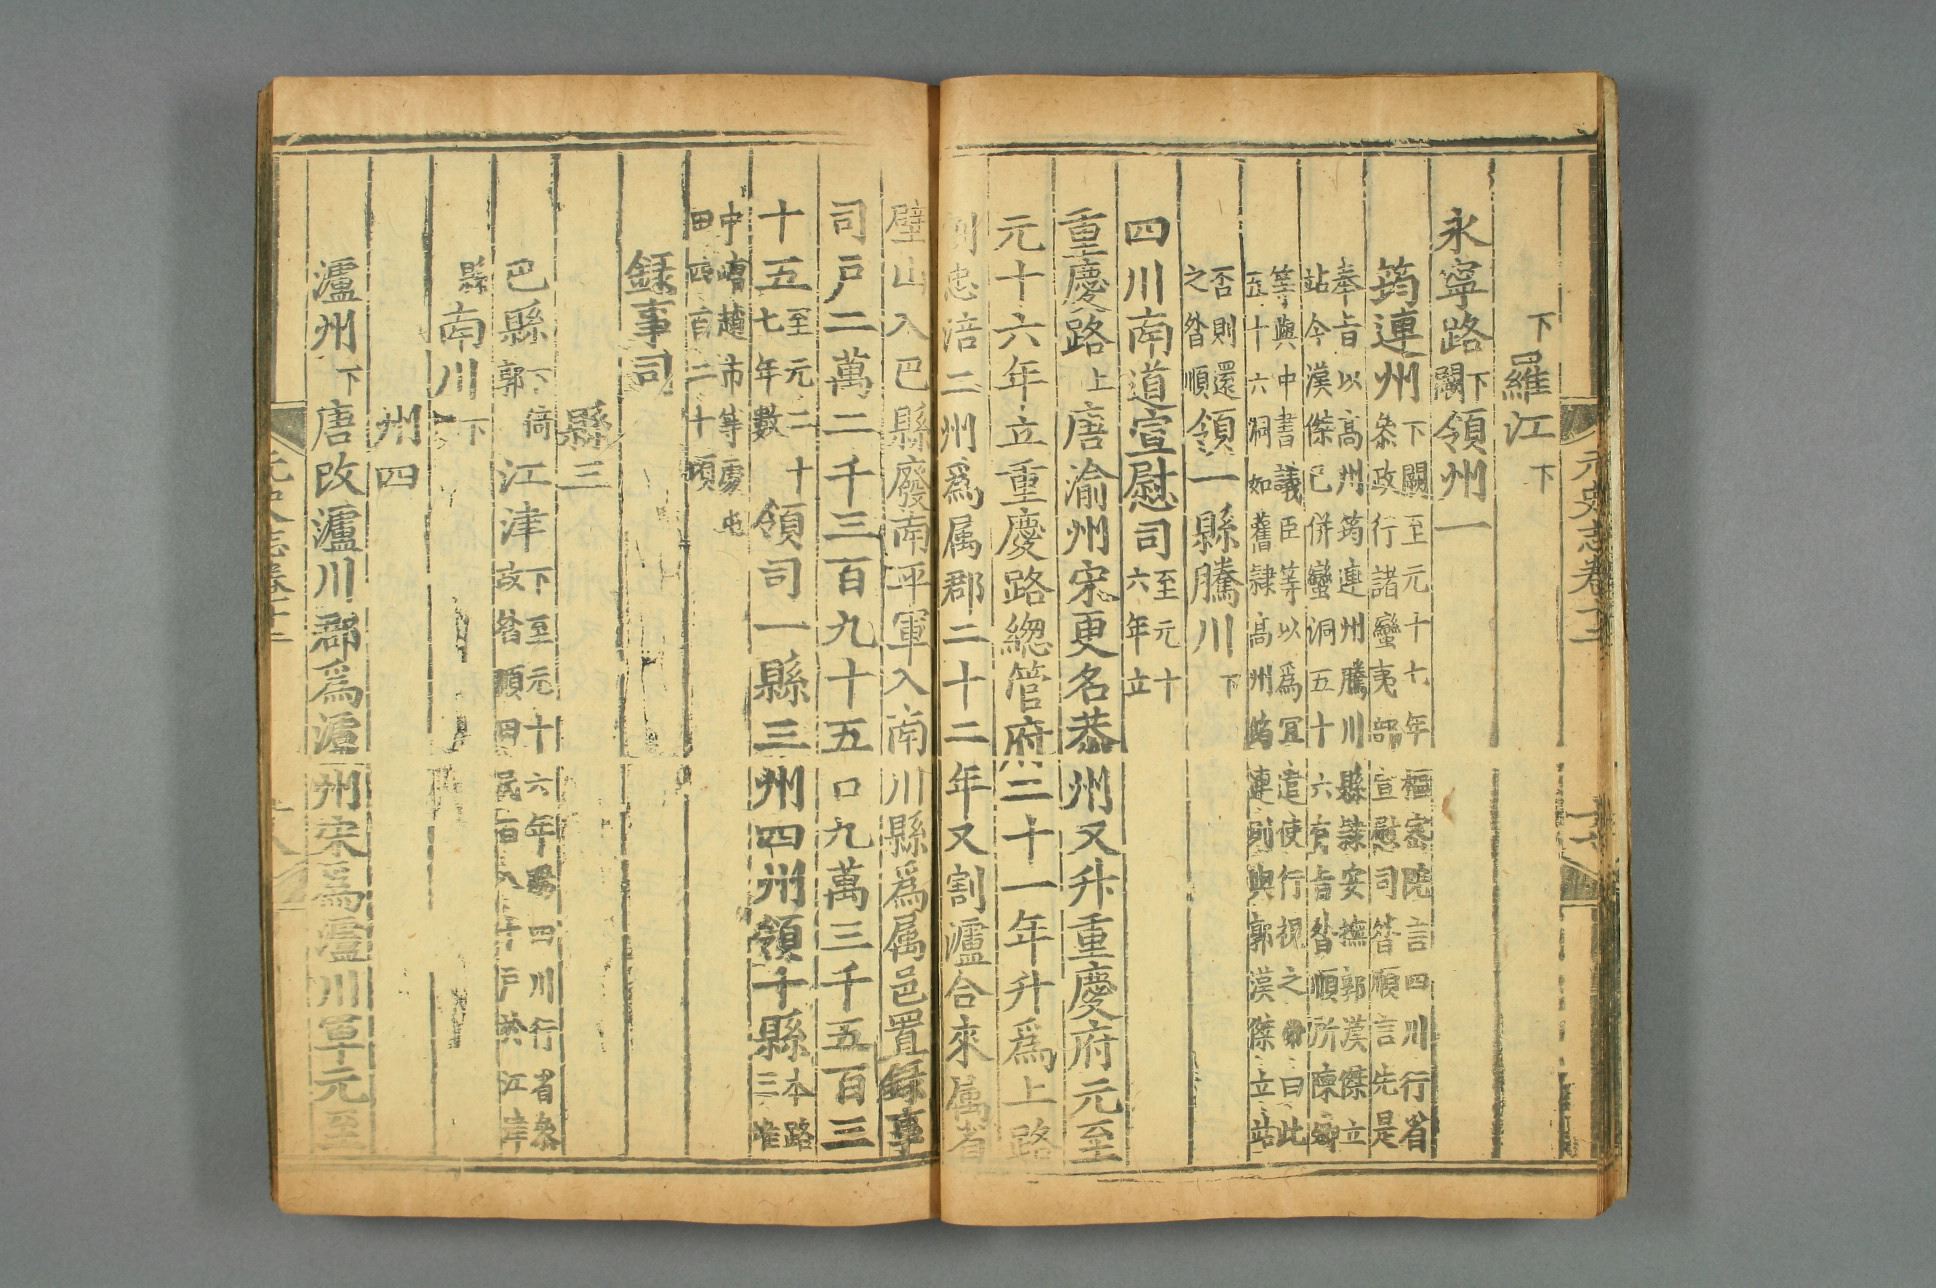 元史志卷十二
下羅江下
永寧路下闕領州一
筠連州下闕至元十七年樞密院言四川行省
參政行諸蠻夷部宣慰司昝順言先是
奉旨以高州筠連州騰川縣隸安撫郭漢傑立
站今漢傑已併蠻洞五十六有旨昝順所陳卿
等與中書議臣等以爲宜遣使行視之帝曰此
五十六洞如舊隸高州筠連則與郭漢傑立站
否則還
之昝順領一縣騰川下
四川南道宣慰司至元十
六年立
重慶路上唐渝州宋更名恭州又升重慶府元至
元十六年立重慶路總管府二十一年升爲上路
割忠涪二州爲属郡二十二年又割瀘合來属省
璧山入巴縣廢南平軍入南川縣爲属邑置録事
司戸二萬二千三百九十五口九萬三千五百三
十五至元二十
七年數領司一縣三州四州領十縣本路
三堆
中嶆趙市等處屯
田四百二十頃
録事司
縣三
巴縣下倚
郭江津下至元十六年賜四川行省參
政昝順田民百八十戸於江津
縣南川下
州四
瀘州下唐改瀘川郡爲瀘州宋爲瀘川軍元至
元史志卷十二